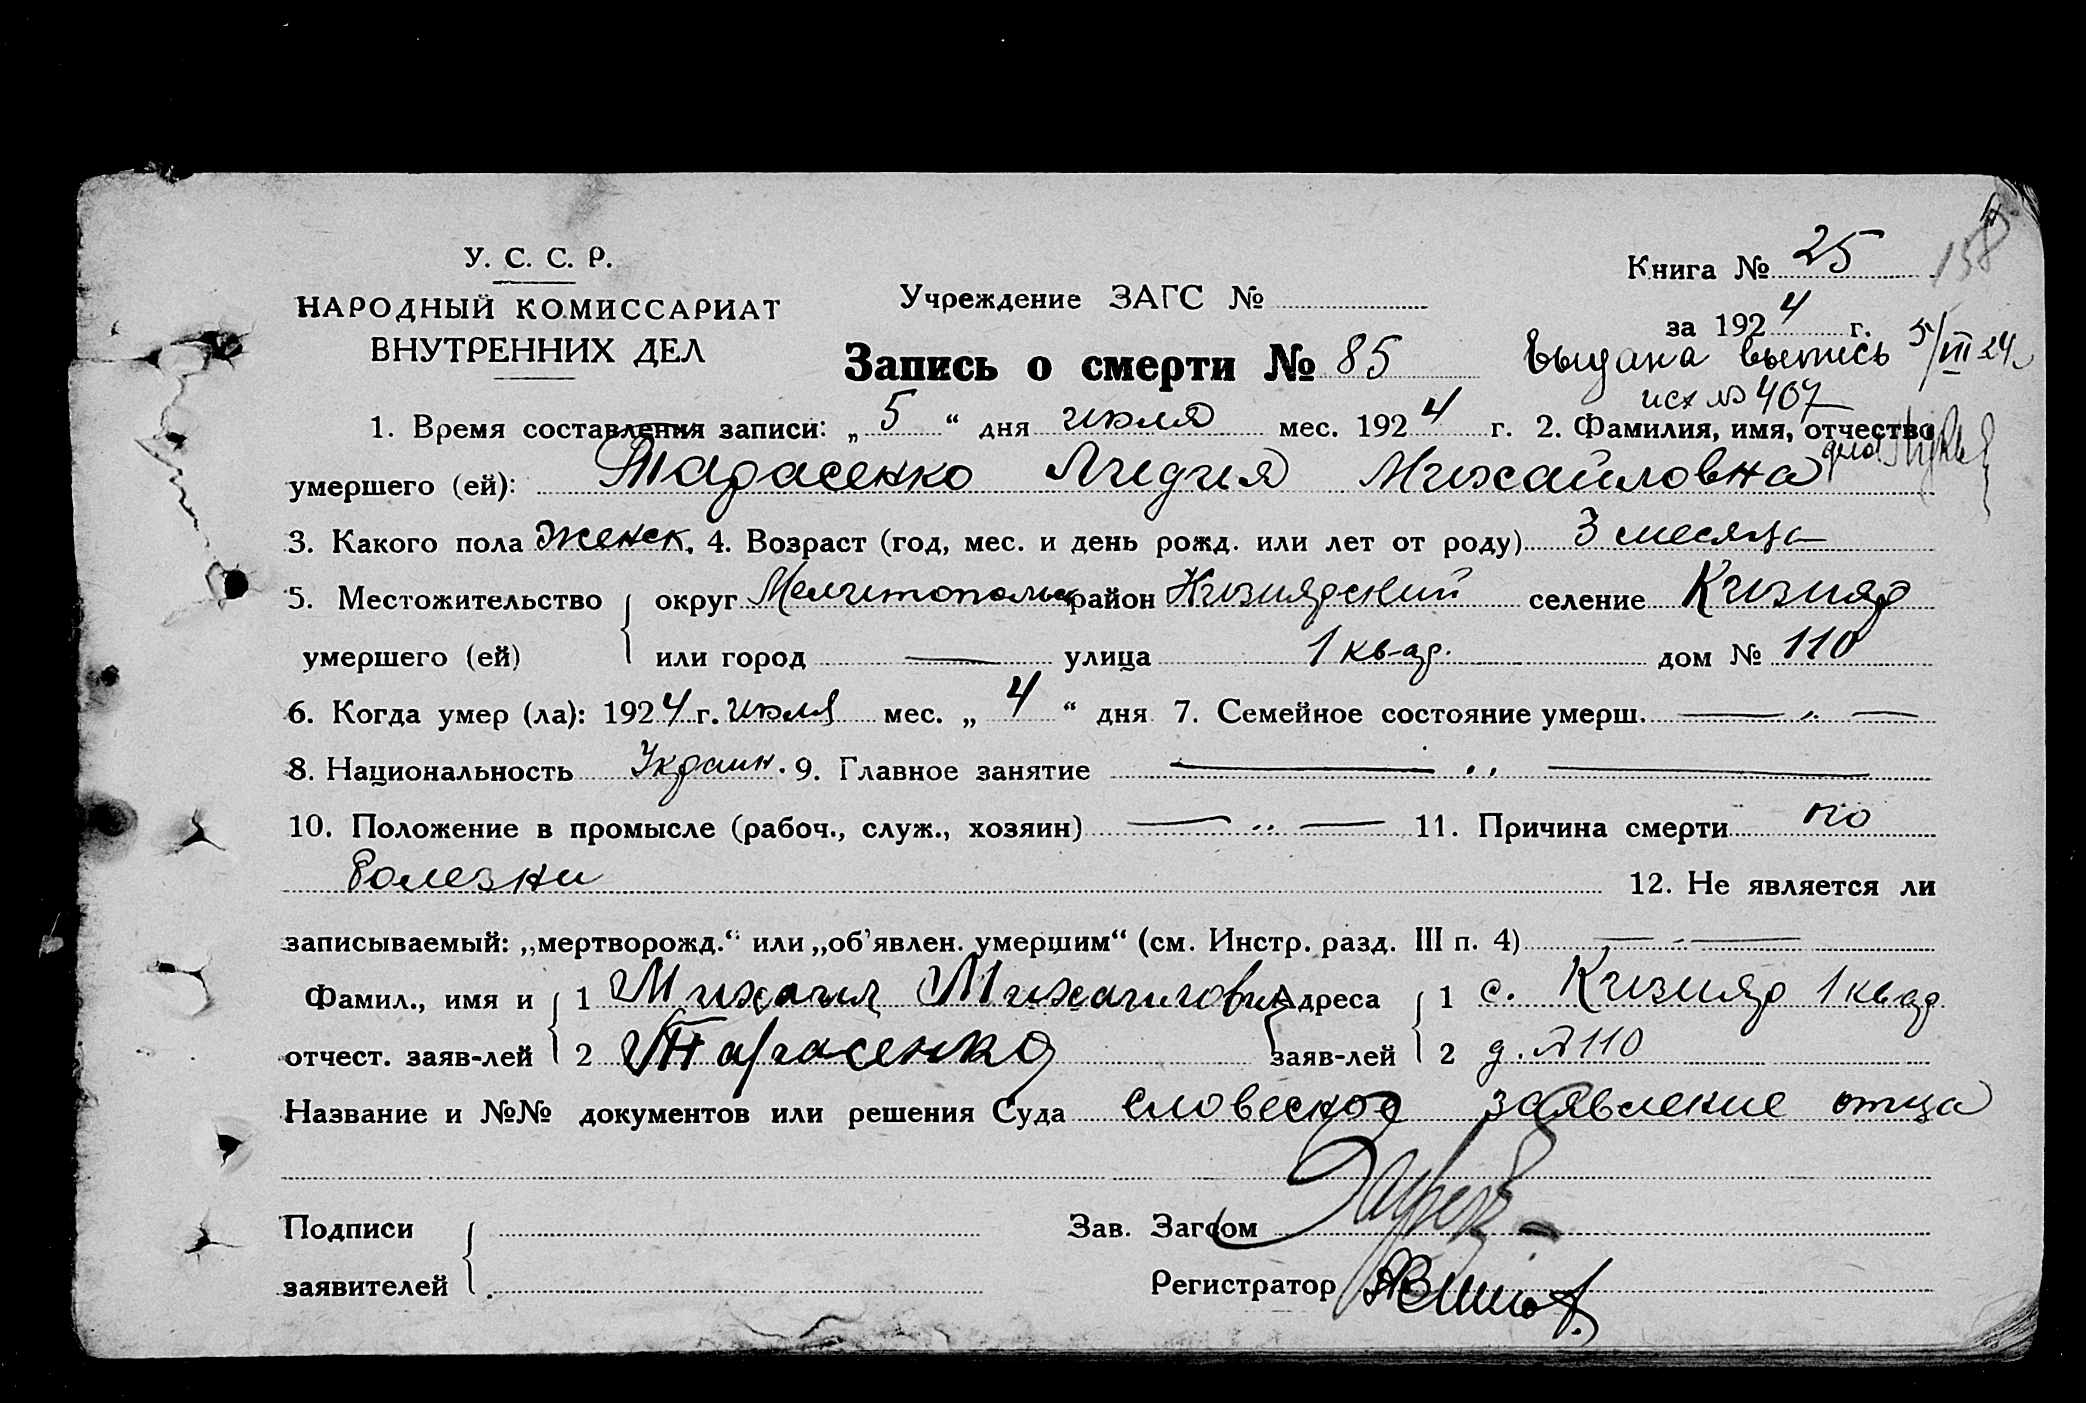 158
У. С. С. Р.
НАРОДНЫЙ КОМИССАРИАТ
ВНУТРЕННИХ ДЕЛ
Учреждение ЗАГС №
Книга № 25
за 1924 г.
Запись о смерти № 85
Выдана выпись 5/VII 24
исх № 407
1. Время составления записи: „5“ дня июля мес. 1924 г. 2. Фамилия, имя, отчество
умершего (ей): Тарасенко Лидия Михайловна
3. Какого пола женск. 4. Возраст (год, мес. и день рожд. или лет от роду) 3 месяца
5. Местожительство округ Мелитопольск район Кизиярский селение Кизияр
умершего (ей) или город — улица 1 квар. дом № 110
6. Когда умер (ла): 1924 г. июля мес. „4“ дня 7. Семейное состояние умерш. — „ —
8. Национальность Украин. 9. Главное занятие — „ —
10. Положение в промысле (рабоч., служ., хозяин) — „ — 11. Причина смерти по
болезни 12. Не является ли
записываемый: „мертворожд.“ или „об'явлен. умершим“ (см. Инстр. разд. III п. 4) — „ —
Фамил., имя и 1 Михаил Михайлович Адреса 1 с. Кизияр 1 квар.
отчест. заяв-лей 2 Тарасенко заяв-лей 2 д. № 110
Название и №№ документов или решения Суда словесное заявление отца
Подписи Зав. Загсом
заявителей Регистратор